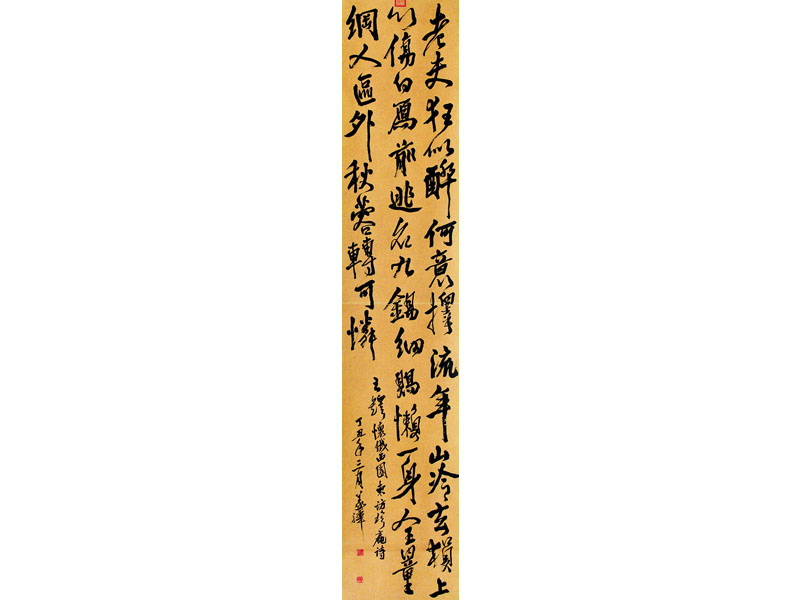 老夫狂似醉何意擇流年山冷玄
上
以傷白鴈前逃名九錫細鷃懶一身全量
網人區外秋蓉轉可憐
王鐸懷儀西園東訪於庵詩
丁丑年三月